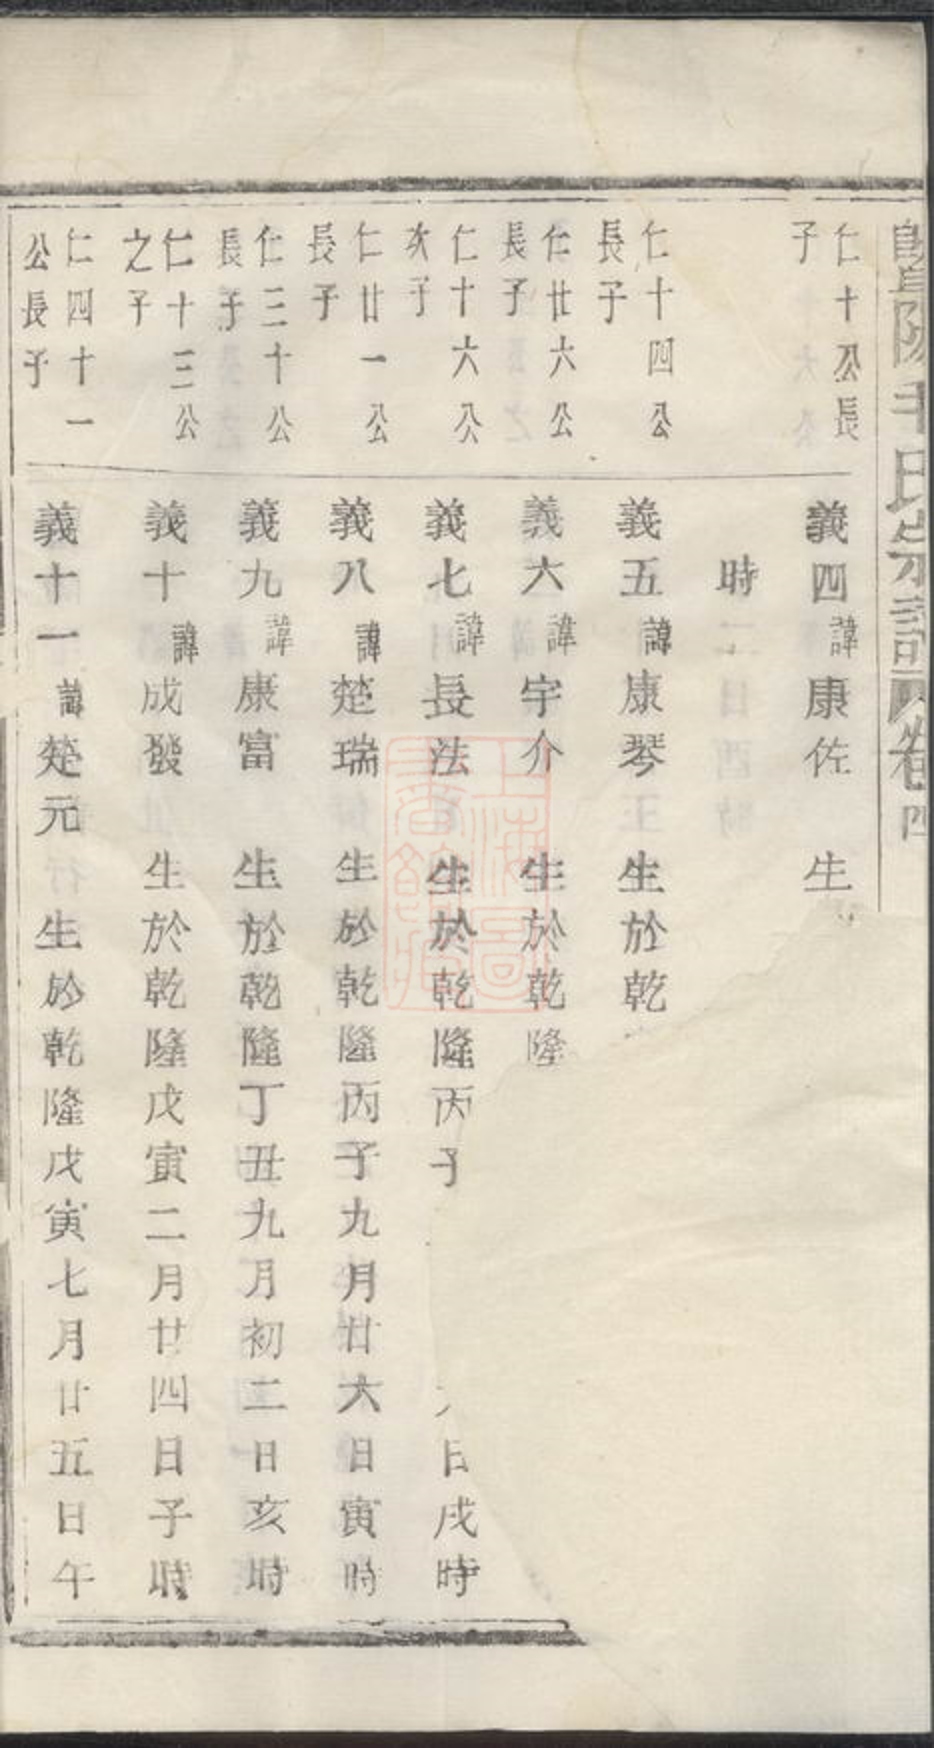 暨陽
氏宗譜
卷四
仁十公長
子
義四諱康佐 生
時
仁十四公
長子
義五諱康琴 生於乾
仁廿六公
長子
義六諱宇介 生於乾隆
仁十六公
次子
義七諱長法 生於乾隆丙子
日戌時
仁廿一公
長子
義八諱楚瑞 生於乾隆丙子九月廿六日寅時
仁三十公
長子
義九諱康富 生於乾隆丁丑九月初二日亥時
仁十三公
之子
義十諱成發 生於乾隆戊寅二月廿四日子時
仁四十一
公長子
義十一諱楚元 生於乾隆戊寅七月廿五日午